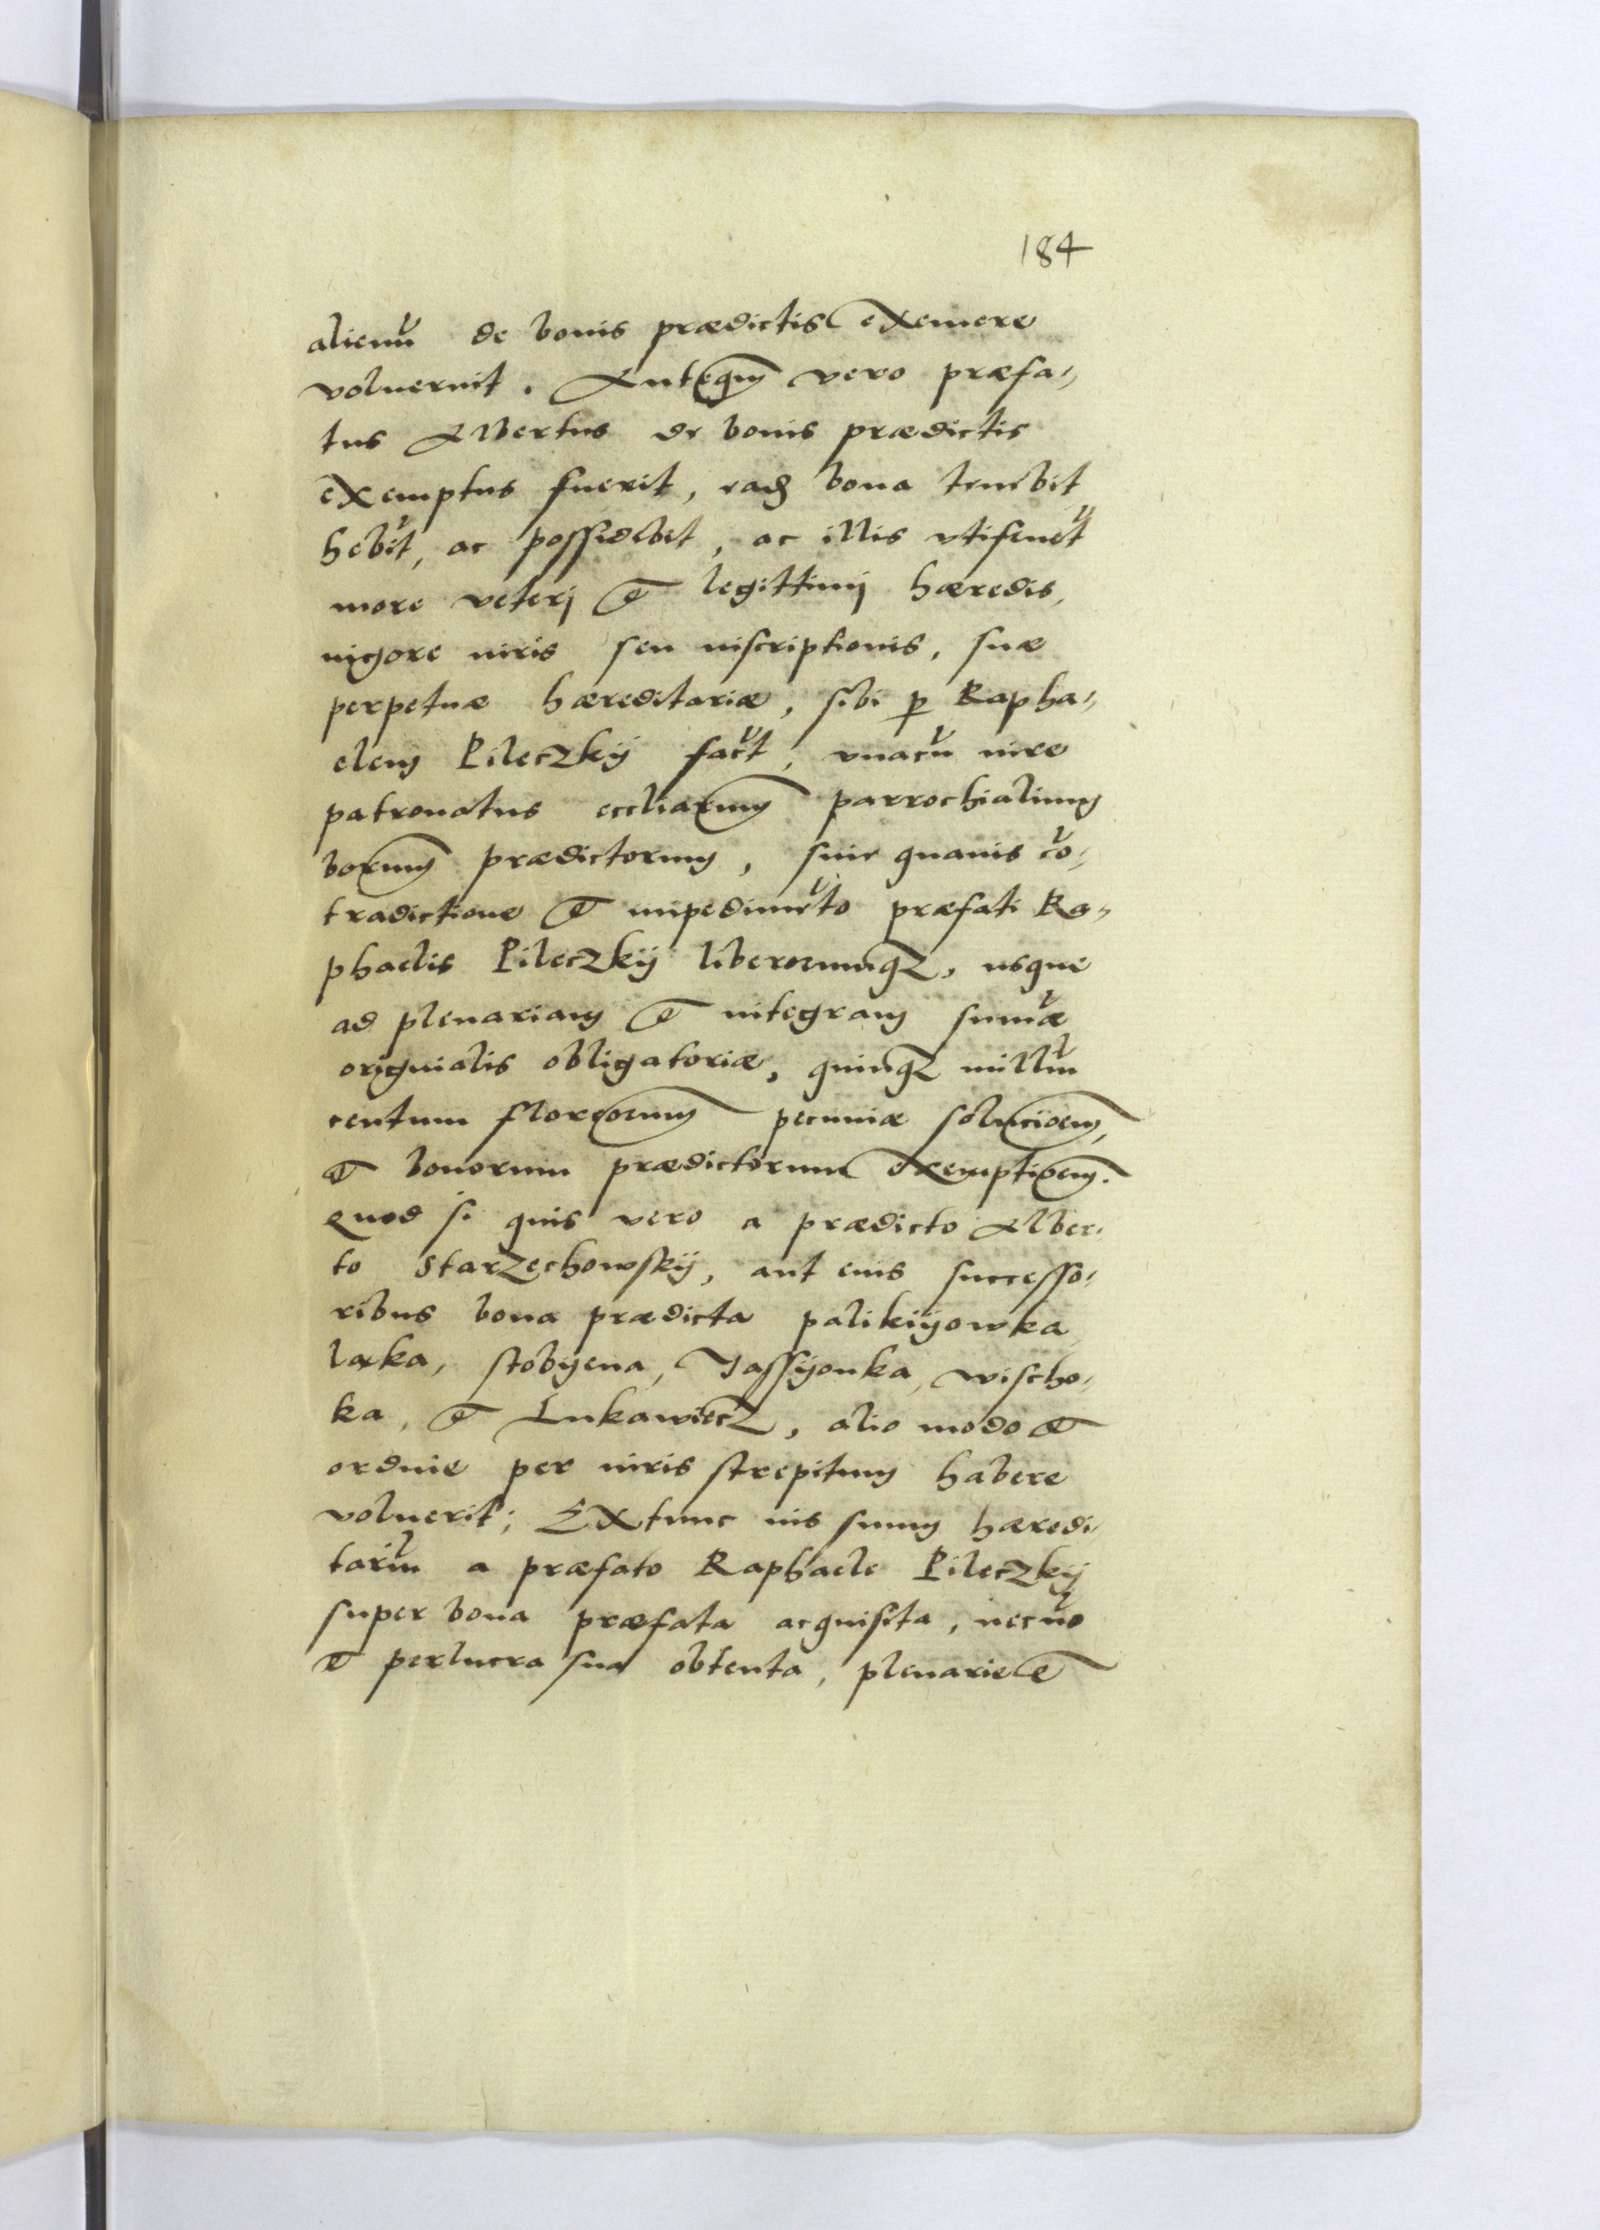 184
alienũ de bonis prædictis exemere
voluerint. Antequam vero præfa-
tus Albertus de bonis prædictis
exemptus fuerit, eadem bona tenebit
hẽbit, ac possidebit, ac illis vtifruet̃
more veterj et legittimj hæredis,
vigore iuris seu inscriptionis, suæ
perpetuæ hæreditariæ, sibi p Rapha-
elem Pileczkÿ fact̃, vnacũ iure
patronatus eccliarum parrochialium
borum prædictorum, sine quauis cõ-
tradictione et impedimẽto præfati Ra-
phaelis Pileczkÿ liberorumqz, usque
ad plenariam et integram sum̃æ
originalis obligatoriæ, quinqz milliũ
centum floreorum pecuniæ soluciõem,
et bonorum prædictorum exemptiõem.
Quod si quis vero a prædicto Alber-
to Starzechowskÿ, aut eius successo-
ribus bona prædicta palikÿowka
laka, stobÿena, Jassÿonka, wischo-
ka, et Lukawiecz, alio modo et
ordine per iuris strepitum habere
voluerit; Extunc ius suum hæredi-
tariũ a præfato Raphaele Pileczkÿ
super bona præfata acquisita, necnõ
et perlucra sua obtenta, plenarie et